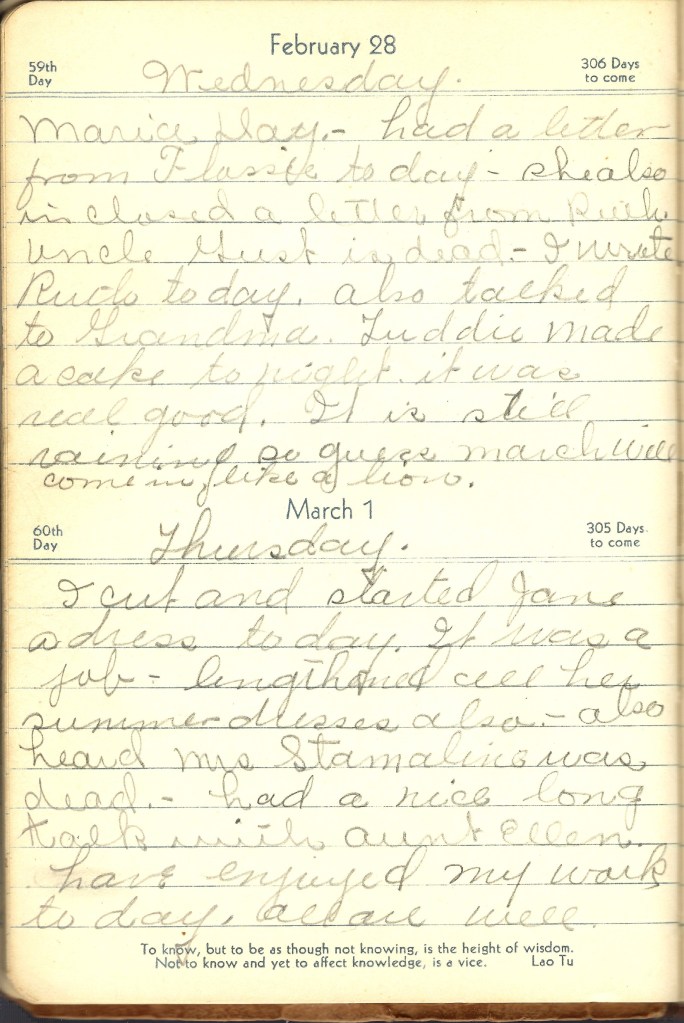 February 28
59th
Day
306 Days
to come
Wednesday.
had a letter
from Flossie to day - she also
inclosed a letter from
Uncle Gust is dead. - I wrote
to day. also talked
to Grandma. made
a cake to night. it was
real good. It is still
raining so guess march will
come in like a lion.
March 1
60th
Day
305 Days
to come
Thursday.
I cut and started Jane
a dress to day. It was a
job - lengthened all her
summer dresses also. - also
heard Mrs was
dead. - had a nice long
talk with aunt Ellen.
have enjoyed my work
to day. all are well.
To know, but to be as though not knowing, is the height of wisdom.
Not to know and yet to affect knowledge, is a vice. Lao Tu